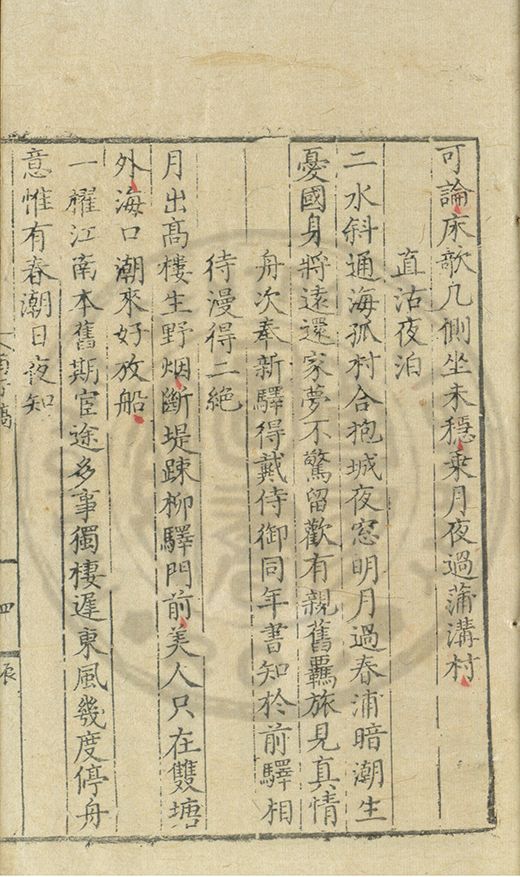 可論床歌几側坐未穩乗月夜過蒲溝村
直沽夜泊
二水斜通海孤村合抱城夜窓明月過春浦暗潮生
憂國身將遠還家夢不驚留歡有親舊羈旅見真情
舟次奉新驛得戴侍御同年書知於前驛相
待漫得二絶
月出高樓生野烟斷堤踈柳驛門前美人只在雙塘
外海口潮來好放船
一櫂江南本舊期宦途多事獨棲遲東風幾度停舟
意惟有春潮日夜知
四